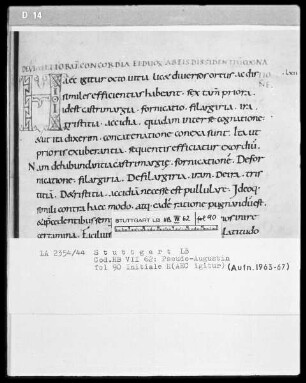 D 14
Haec igitur octo uitia licæ diuersos ortus ac dis
similes efficientias habeant. sex tam priora
idest castrimargia. fornicatio. filargiria. ira
tristitia. accidia. quadam inter se cognatione
& ut ita dixerim. concatenatione conexa sunt. Ita ut
prioris exuberantia. sequenti efficiatur exordiū
Nam de habundantia castrimargiæ. fornicationē. De for
nicatione. filargiriā. De filargiria. iram. De ira. tris
titiā. De tristitia. accidiā necesse est pullulare. Ideoq;
simili contra hæc modo. atq; eadē ratione pugnandū est.
STUTTGART LB HB VII 62 fol 90
LA 2354/44 Stuttgart LB
Cod.HB VII 62: Pseudo-Augustin
fol 90 Initiale H(AEC igitur)
(Aufn.1963-67)